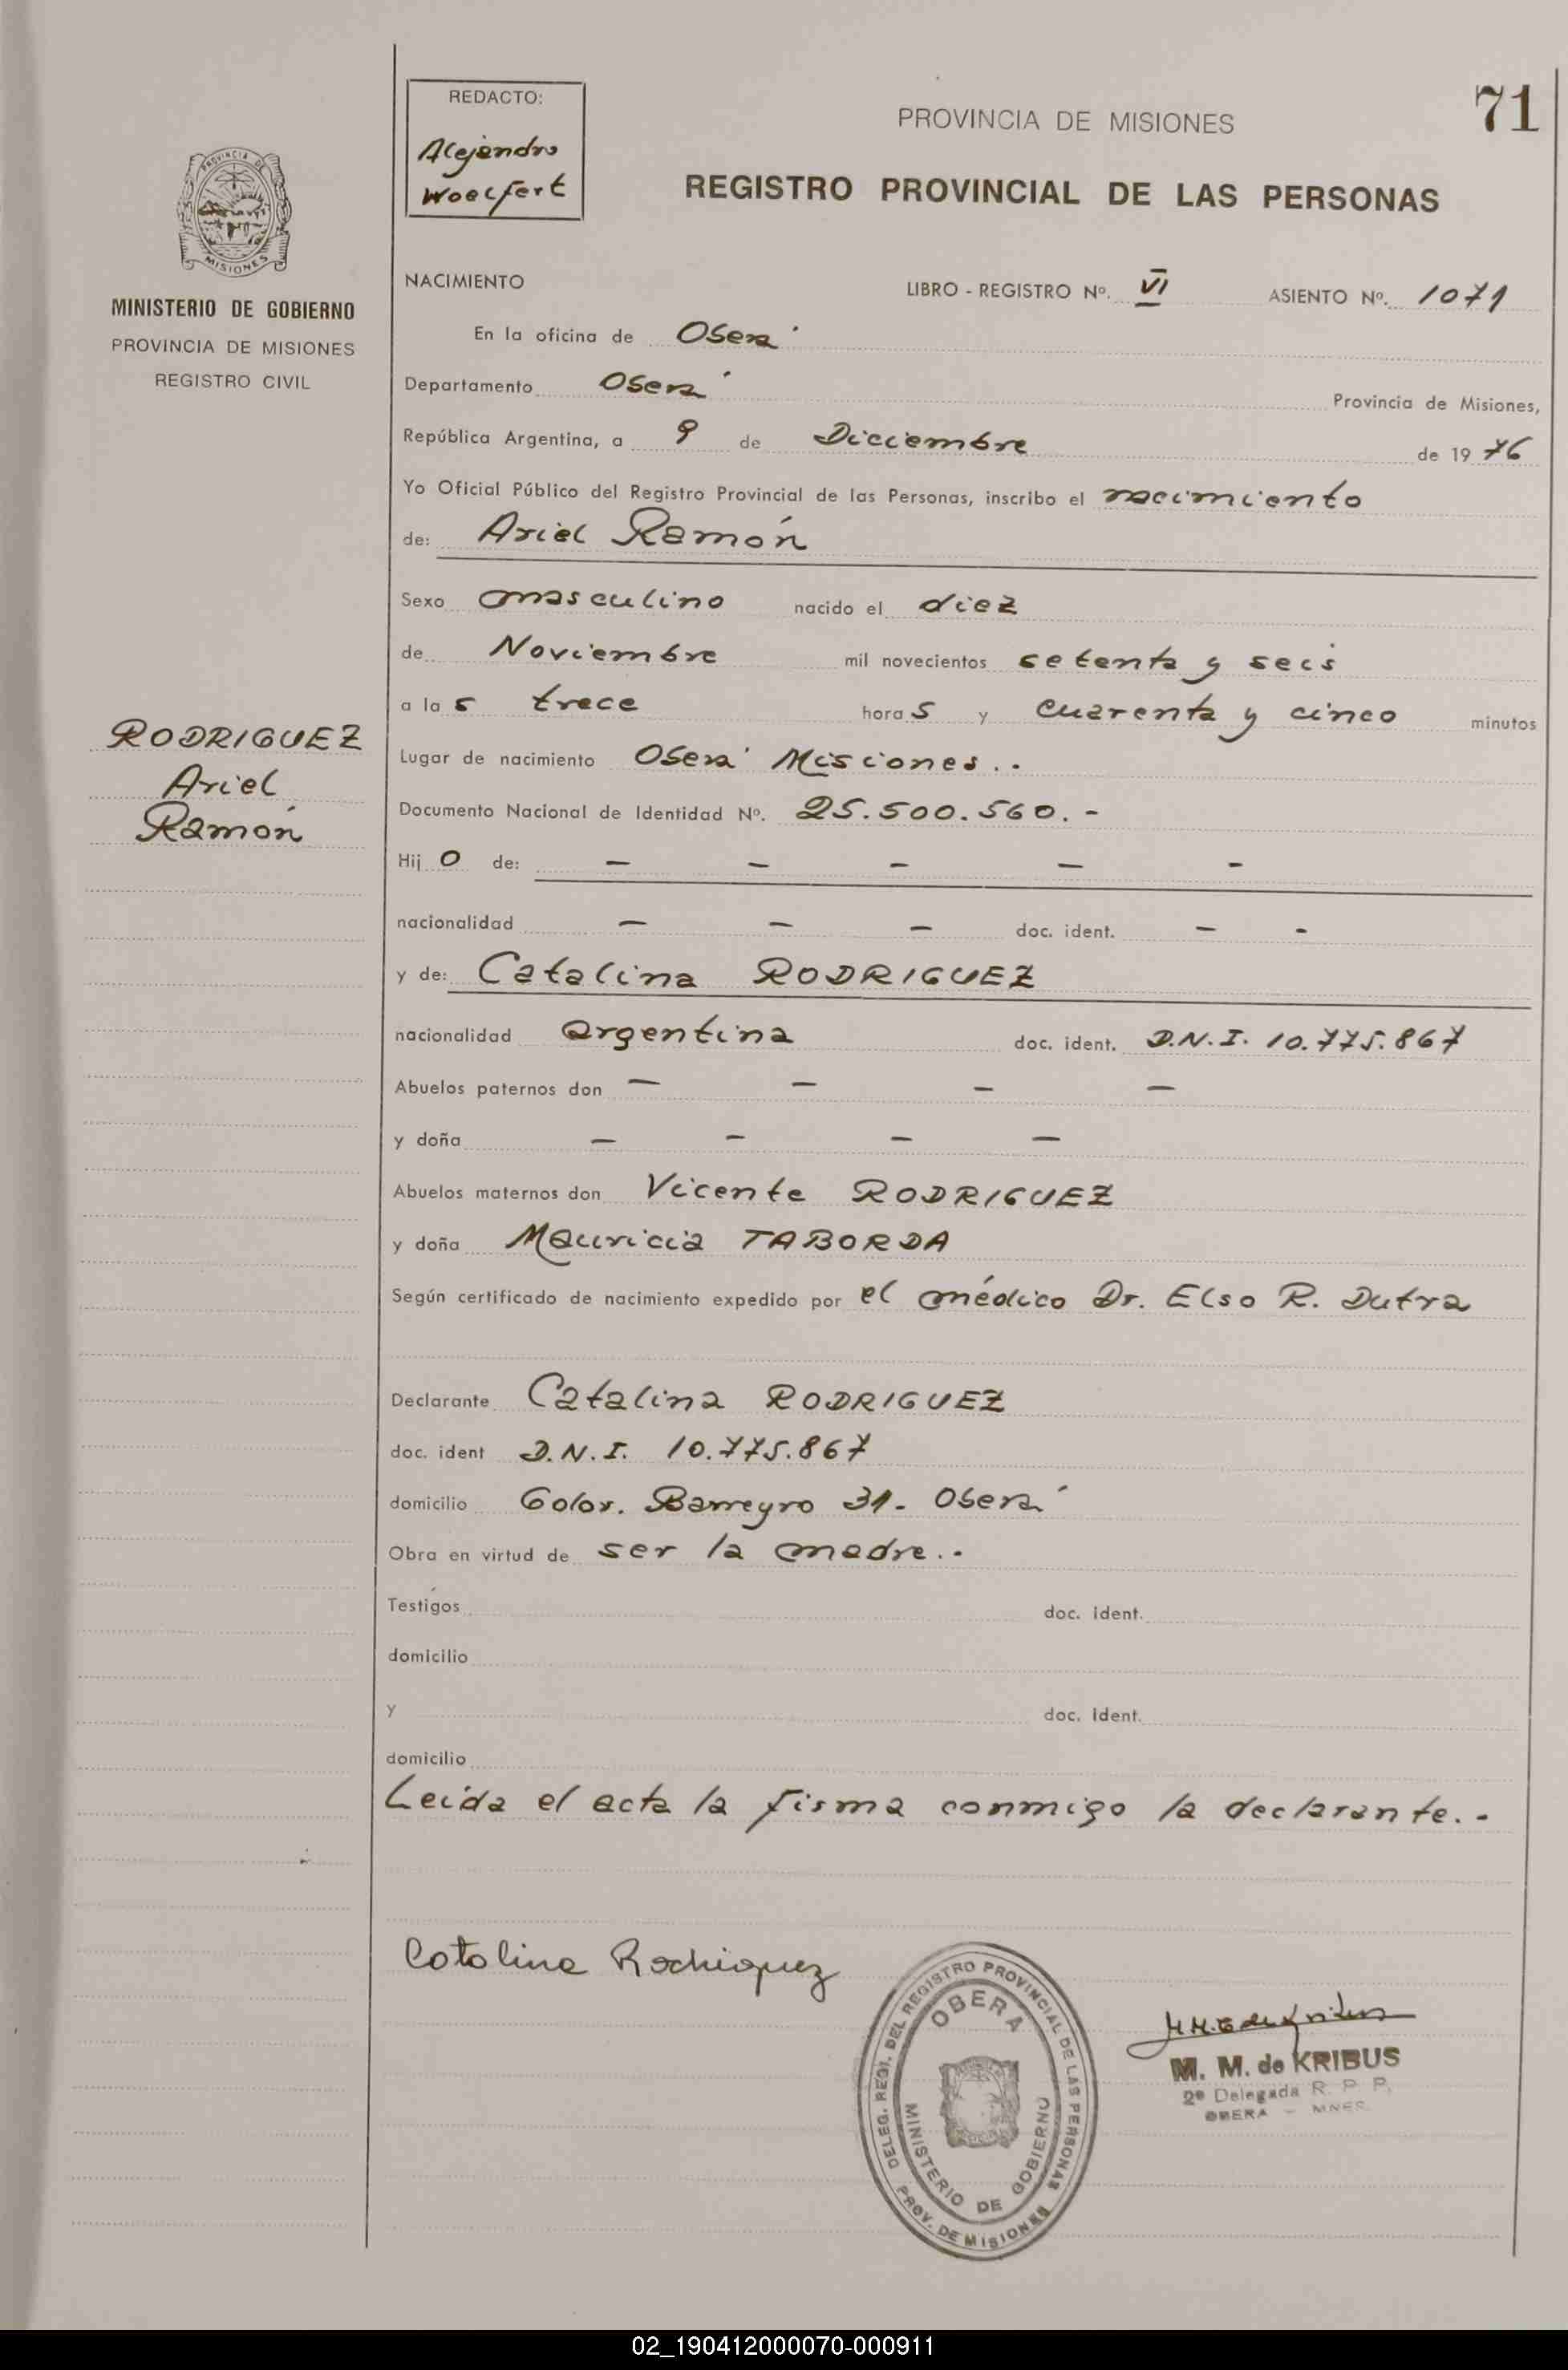 71
REDACTO:
Alejandro
Woelfert
PROVINCIA DE MISIONES
REGISTRO PROVINCIAL DE LAS PERSONAS
PROVINCIA DE
MISIONES
MINISTERIO DE GOBIERNO
PROVINCIA DE MISIONES
REGISTRO CIVIL
NACIMIENTO
LIBRO - REGISTRO Nº. VI ASIENTO Nº. 1071
En la oficina de Oberá
Departamento Oberá Provincia de Misiones,
República Argentina, a 9 de Diciembre de 1976
Yo Oficial Público del Registro Provincial de las Personas, inscribo el nacimiento
de: Ariel Ramón
Sexo masculino nacido el diez
de Noviembre mil novecientos setenta y seis
a las trece horas y cuarenta y cinco minutos
RODRIGUEZ
Ariel
Ramón
Lugar de nacimiento Oberá Misiones.-
Documento Nacional de Identidad Nº. 25.500.560.-
Hijo de: — — — — -
nacionalidad — — — doc. ident. — -
y de: Catalina RODRIGUEZ
nacionalidad argentina doc. ident. D.N.I. 10.775.867
Abuelos paternos don — — — —
y doña — — — —
Abuelos maternos don Vicente RODRIGUEZ
y doña Mauricia TABORDA
Según certificado de nacimiento expedido por el médico Dr. Elso R. Dutra
Declarante Catalina RODRIGUEZ
doc. ident D.N.I. 10.775.867
domicilio Gdor. Barreyro 31- Oberá
Obra en virtud de ser la madre.-
Testigos doc. ident.
domicilio
y doc. ident.
domicilio
Leida el acta la firma conmigo la declarante.-
Catalina Rodriguez
DELEG. REGI. DEL REGISTRO PROVINCIAL DE LAS PERSONAS
OBERA
MINISTERIO DE GOBIERNO
PROV. DE MISIONES
M. M. de KRIBUS
2º Delegada R. P. P.
OBERA - MNES.
02_190412000070-000911